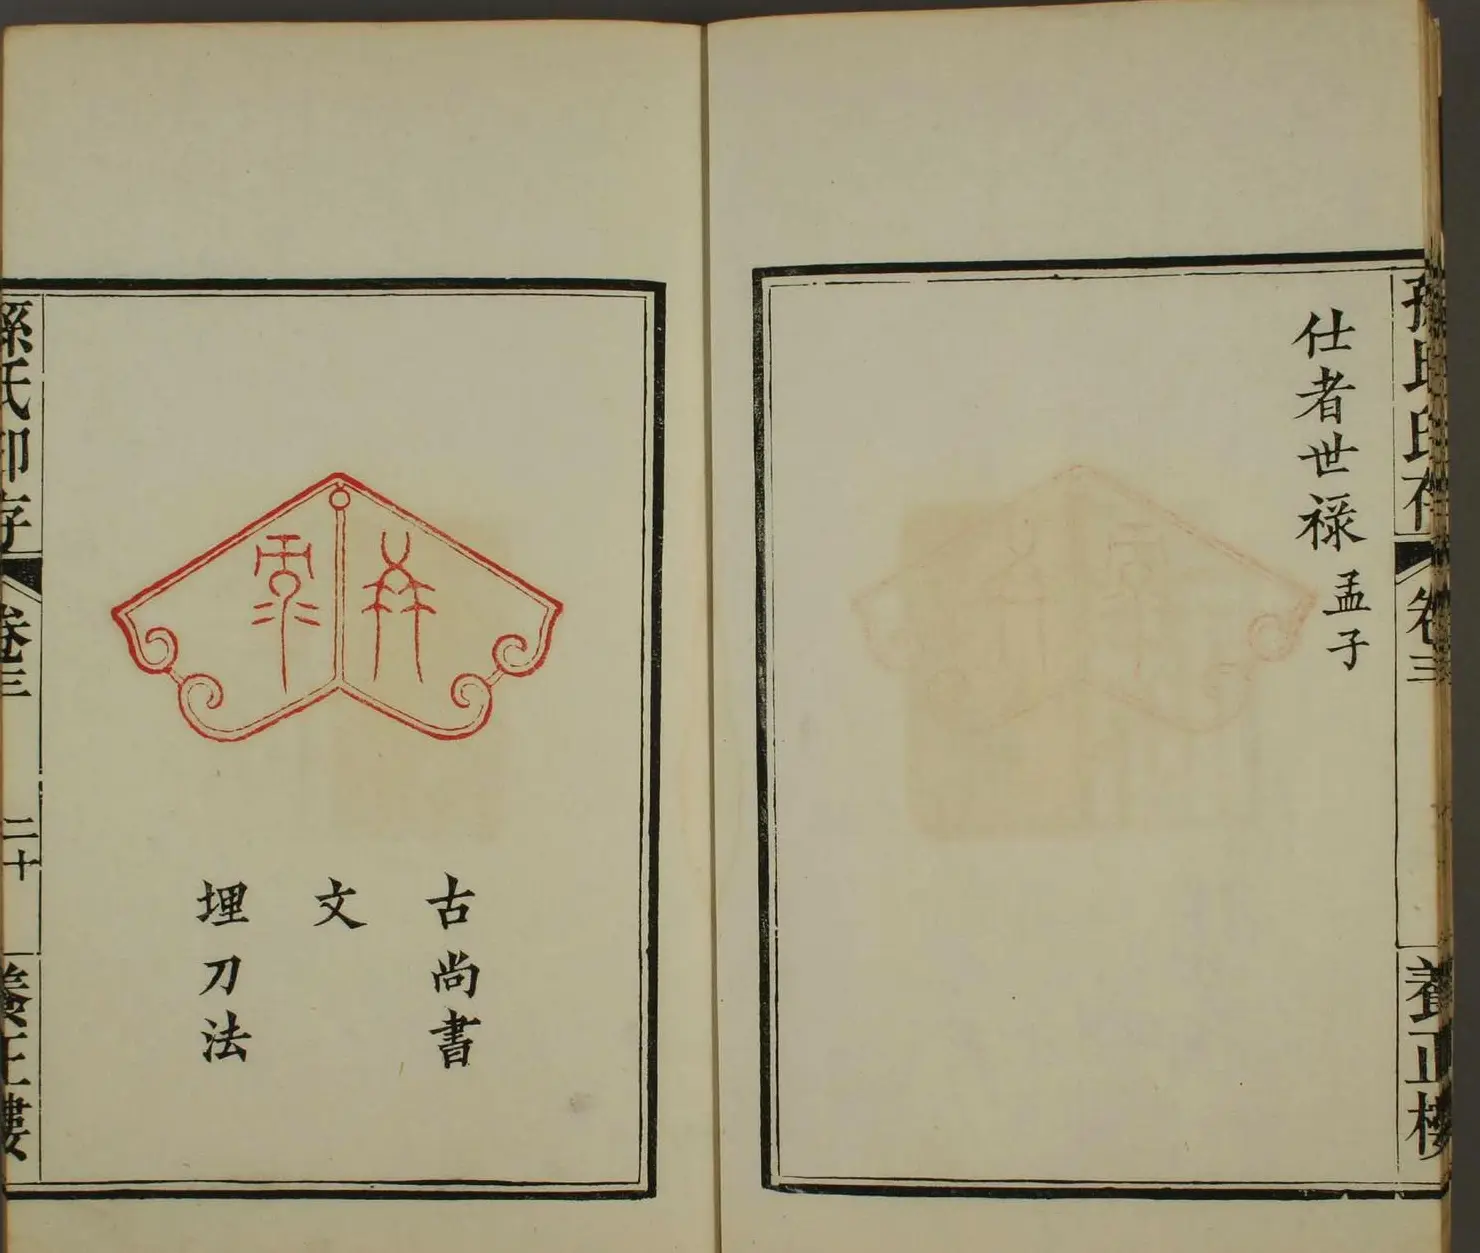 孫氏印存
卷三
養正樓
仕者世祿 孟子
古尚書
文
埋刀法
孫氏印存
卷三
二十
養正樓